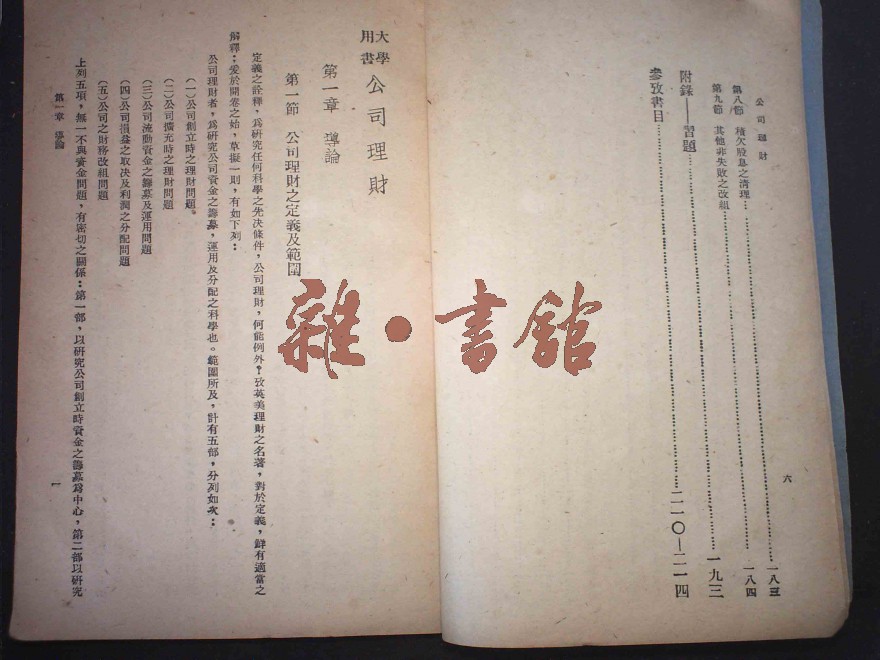 公司理財
六
第八節 積欠股息之清理……………一八三
第九節 其他非失敗之改組……………一八四
附錄——習題……………一九三
參攷書目……………二一〇—二一四
大學用書 公司理財
第一章 導論
第一節 公司理財之定義及範圍
定義之詮釋，爲研究任何科學之先決條件，公司理財，何能例外？攷英美理財之名著，對於定義，鮮有適當之
解釋：爰於開卷之始，草擬一則，有如下列：
公司理財者，爲研究公司資金之籌募，運用及分配之科學也。範圍所及，計有五部，分列如次：
（一）公司創立時之理財問題。
（二）公司擴充時之理財問題
（三）公司流動資金之籌募及運用問題
（四）公司損益之取決及利潤之分配問題
（五）公司之財務改組問題
上列五項，無一不與資金問題，有密切之關係：第一部，以研究公司創立時資金之籌募爲中心，第二部以研究
第一章 導論
一
雜·書館